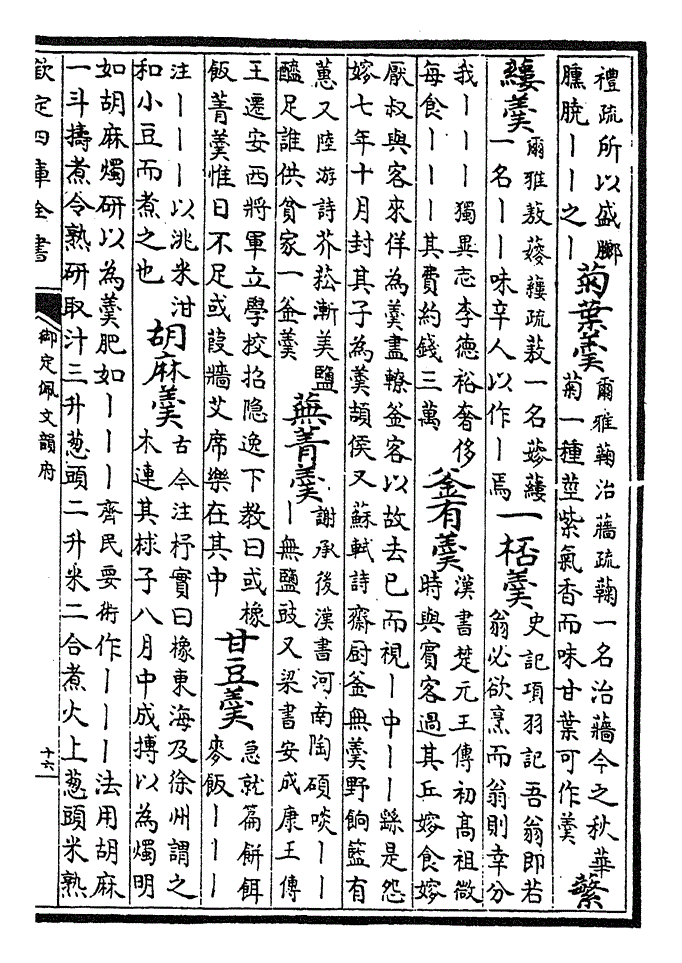 禮疏所以盛膷
臐膮丨丨之丨
菊葉羮
爾雅蘜治蘠疏蘜一名治蘠今之秋華
菊一種莖紫氣香而味甘葉可作羮
蘩
縷羮
爾雅蔜䕅蔞疏蔜一名䕅蔞
一名丨丨味辛人以作丨焉
一桮羮
史記項羽記吾翁即若
翁必欲烹而翁則幸分
我丨丨丨獨異志李徳裕奢侈
每食丨丨丨其費約錢三萬
釜有羮
漢書楚元王傳初髙祖微
時與賓客過其丘嫂食嫂
厭叔與客來佯為羮盡轑釜客以故去已而視丨中丨丨繇是怨
嫂七年十月封其子為羮頡侯又蘇軾詩齋厨釜無羮野餉籃有
蕙又陸游詩芥菘漸美鹽
醯足誰供貧家一釜羮
蕪菁羮
謝承後漢書河南陶碩啖丨丨
丨無鹽豉又梁書安成康王傳
王遷安西將軍立學校招隠逸下教曰或橡
飯菁羮惟日不足或葭牆艾席樂在其中
甘豆羮
急就篇餅餌
麥飯丨丨丨
注丨丨丨以洮米泔
和小豆而煮之也
胡麻羮
古今注杼實曰橡東海及徐州謂之
木連其梂子八月中成摶以為燭明
如胡麻燭研以為羮肥如丨丨丨齊民要術作丨丨丨法用胡麻
一斗擣煮令熟研取汁三升葱頭二升米二合煮火上葱頭米熟
欽定四庫全書
御定佩文韻府
十六